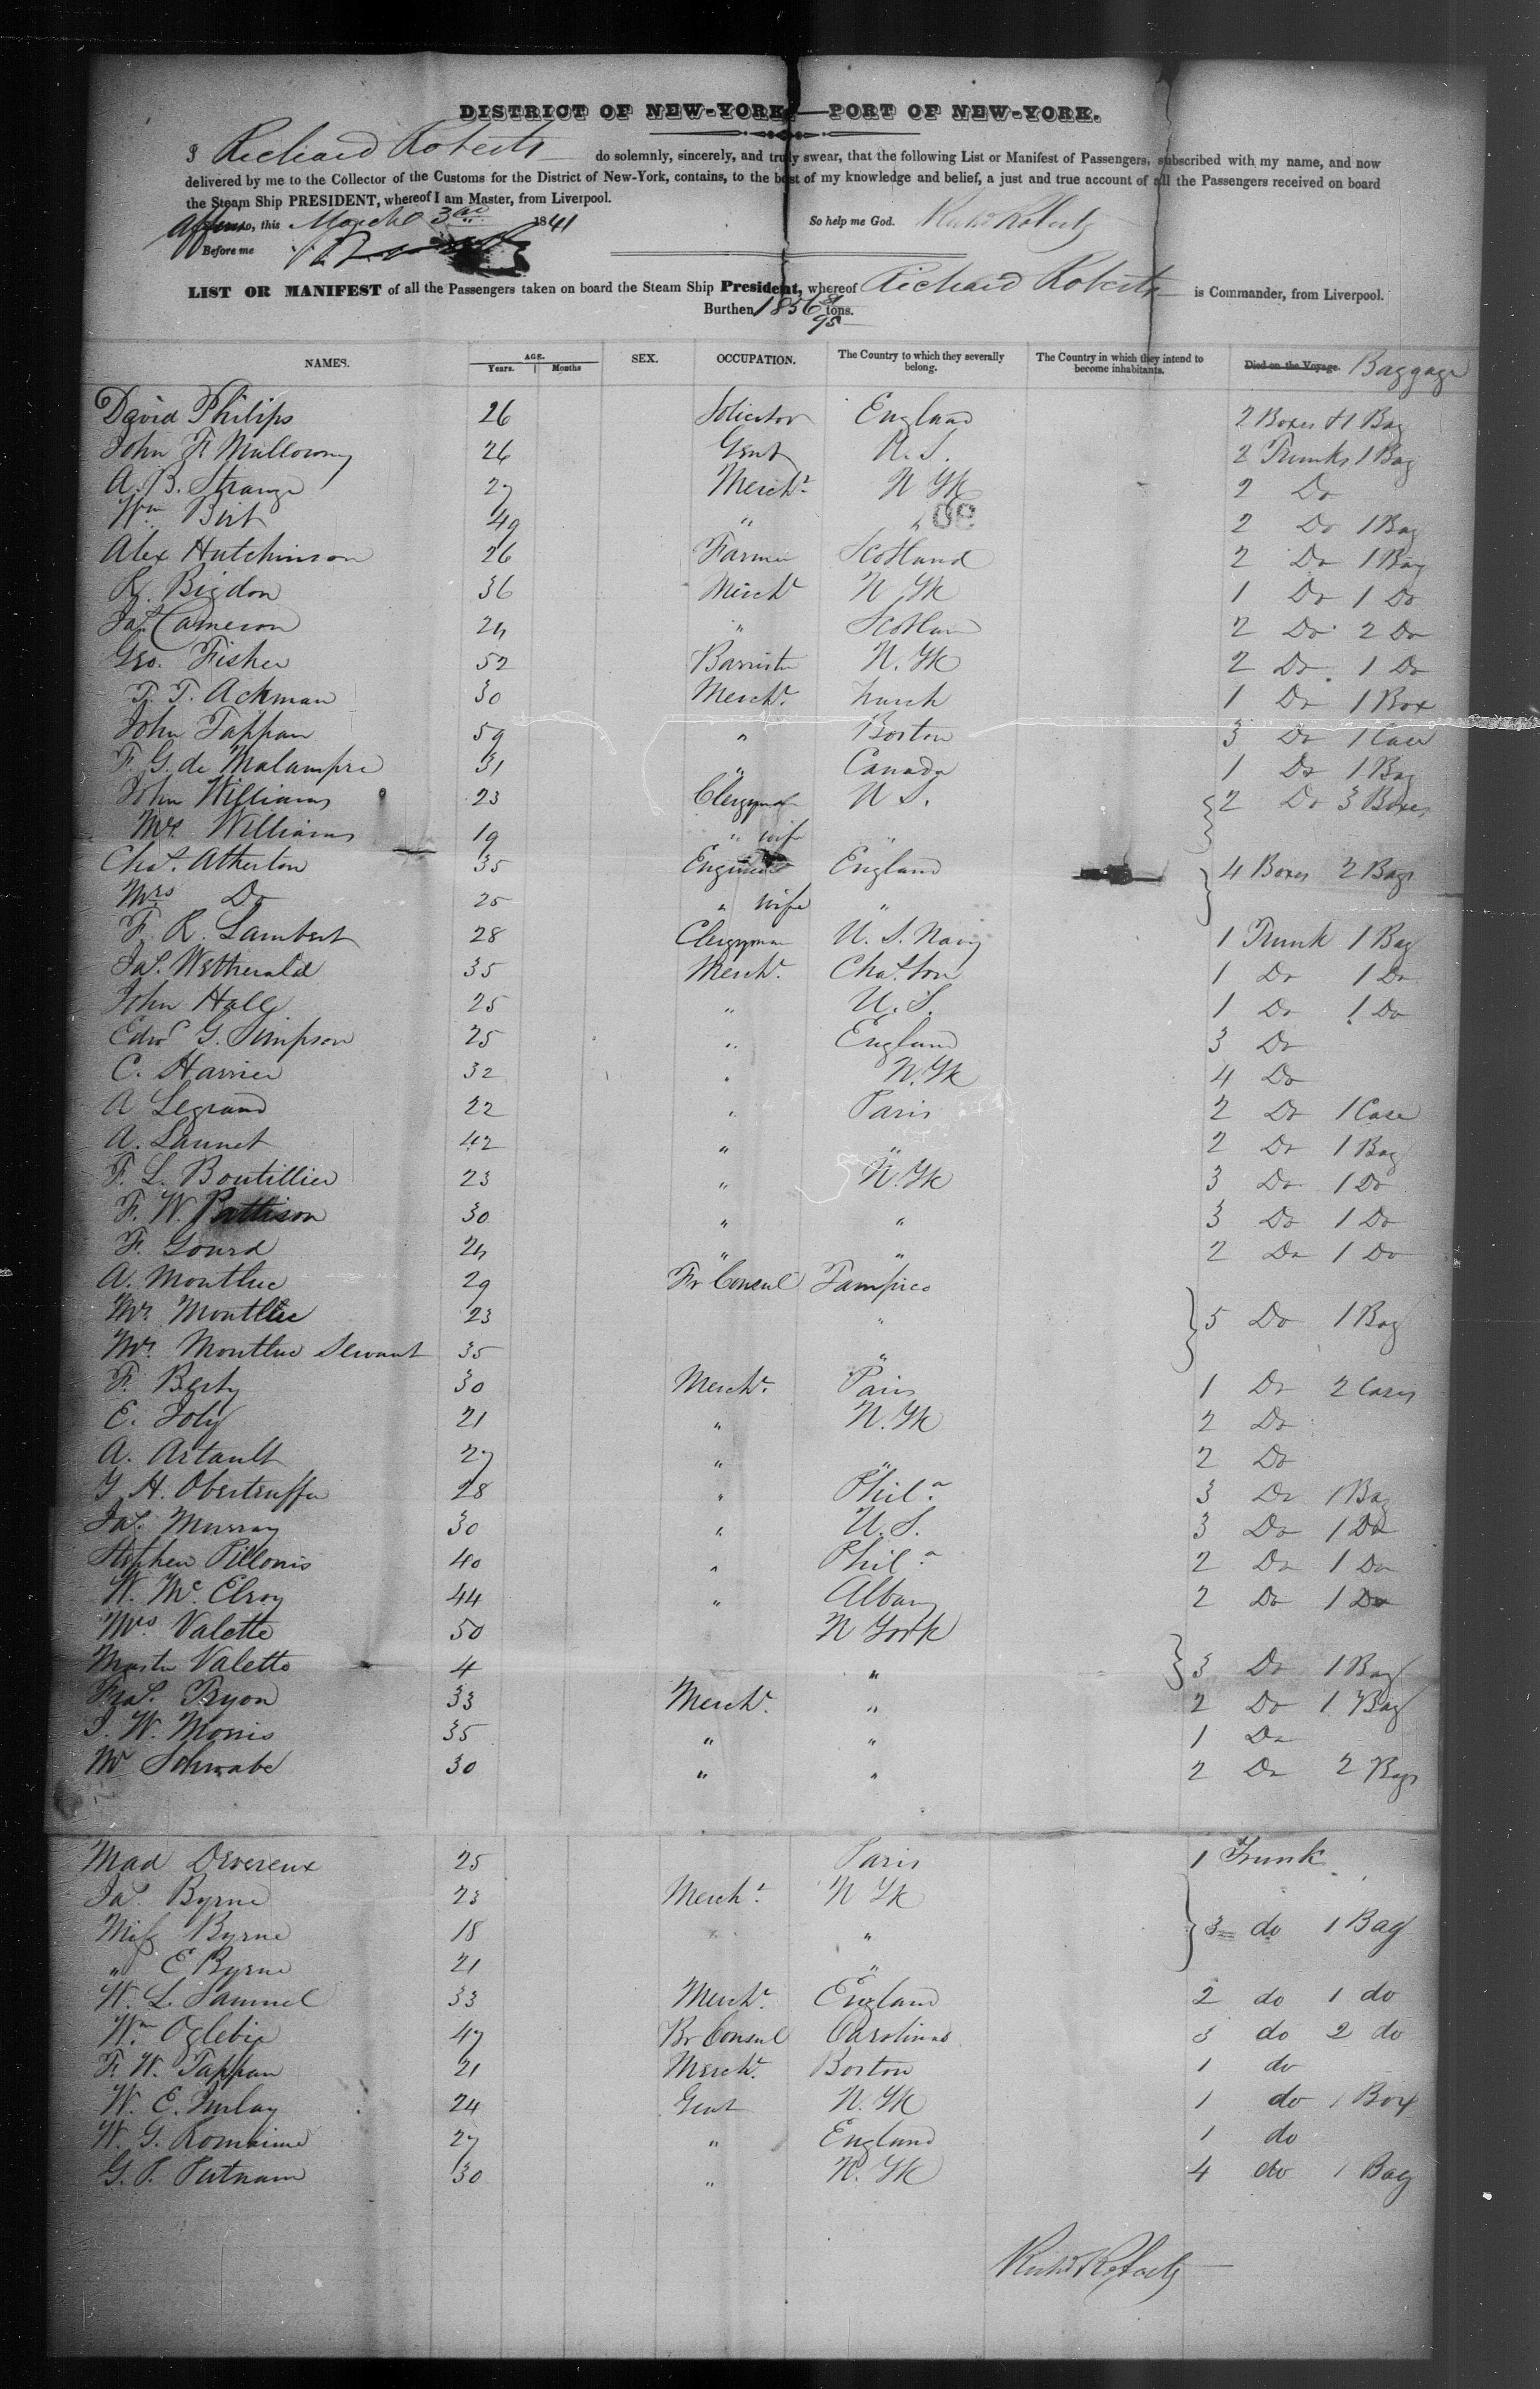 DISTRICT OF NEW-YORK—PORT OF NEW-YORK.
I Richard Roberts do solemnly, sincerely, and truly swear, that the following List or Manifest of Passengers, subscribed with my name, and now
delivered by me to the Collector of the Customs for the District of New-York, contains, to the best of my knowledge and belief, a just and true account of all the Passengers received on board
the Steam Ship PRESIDENT, whereof I am Master, from Liverpool.
to, this March 3rd 1841 So help me God. Richd Roberts
Before me
LIST OR MANIFEST of all the Passengers taken on board the Steam Ship President, whereof Richard Roberts is Commander, from Liverpool.
Burthen 1856 tons.
95
NAMES. AGE. Years. Months SEX. OCCUPATION. The Country to which they severally belong. The Country in which they intend to become inhabitants. Died on the Voyage. Baggage
David Philips 26 Solicitor England 2 Boxes & 1 Bag
John F. Mullowny 26 Gent U.S. 2 Trunks 1 Bag
A. B. Strange 27 Mercht N Yk 2 Do
Wm Birt 49 " " 2 Do 1 Bag
Alex Hutchinson 26 Farmer Scotland 2 Do 1 Bag
R. Bigdon 36 Mercht N Yk 1 Do 1 Do
Jas. Cameron 24 " Scotland 2 Do 2 Do
Geo. Fisher 52 Barrister N. Yk 2 Do 1 Do
T. T. Ackman 30 Mercht. 1 Do 1 Box
John Tappan 59 " Boston 3 Do 1 Case
F. G. de Malampre 31 " Canada 1 Do 1 Bag
John Williams 23 Clergyman U S. 2 Do 3 Boxes
Mrs. Williams 19 " wife "
Chas. Atherton 35 Engineer England 4 Boxes 2 Bags
Mrs Do 25 " wife "
F. R. Lambert 28 Clergyman U. S. Navy 1 Trunk 1 Bag
Jas. Wetherald 35 Mercht. Chas.ton 1 Do 1 Do
John Hall 25 " U. S. 1 Do 1 Do
Edwd G. Simpson 25 " England 3 Do
C. Harrier 32 " N. Yk 4 Do
A Legrand 22 " Paris 2 Do 1 Case
A. Launet 42 " " 2 Do 1 Bag
F. L. Boutillier 23 " N. Yk 3 Do 1 Do
F. W. Pattison 30 " " 3 Do 1 Do
F. Gourd 24 " " 2 Do 1 Do
A. Montluc 29 Fr Consul Tampico
Mrs. Montluc 23 " 5 Do 1 Bag
Mrs. Montluc Servant 35 "
F. Berty 30 Mercht. Paris 1 Do 2 Cases
E. Joly 21 " N. Yk 2 Do
A. Artault 27 " " 2 Do
J H. Obertruffer 28 " Phila 3 Do 1 Bag
Jas. Murray 30 " U. S. 3 Do 1 Do
Stephen Pillonis 40 " Phila 2 Do 1 Do
W. Mc. Elroy 44 " Albany 2 Do 1 Do
Mrs. Valette 50 N York
Master Valette 4 " 3 Do 1 Bag
Fras. Tryon 33 Mercht. " 2 Do 1 Bag
J. W. Morris 35 " " 1 Do
Mr Schwabe 30 " " 2 Do 2 Bags
Mad Devereux 25 Paris 1 Trunk
Jas. Byrne 23 Mercht. N Yk
Miss Byrne 18 " 3 do 1 Bag
" E Byrne 21 "
W. L. Samuel 33 Mercht. England 2 do 1 do
Wm Oglebie 47 Br Consul Carolinas 3 do 2 do
F. W. Tappan 21 Mercht. Boston 1 do
W. E. Finlay 24 Gent N. Yk 1 do 1 Box
W. G. Romaine 27 " England 1 do
G. P. Putnam 30 " N. Yk 4 do 1 Bag
Richd Roberts